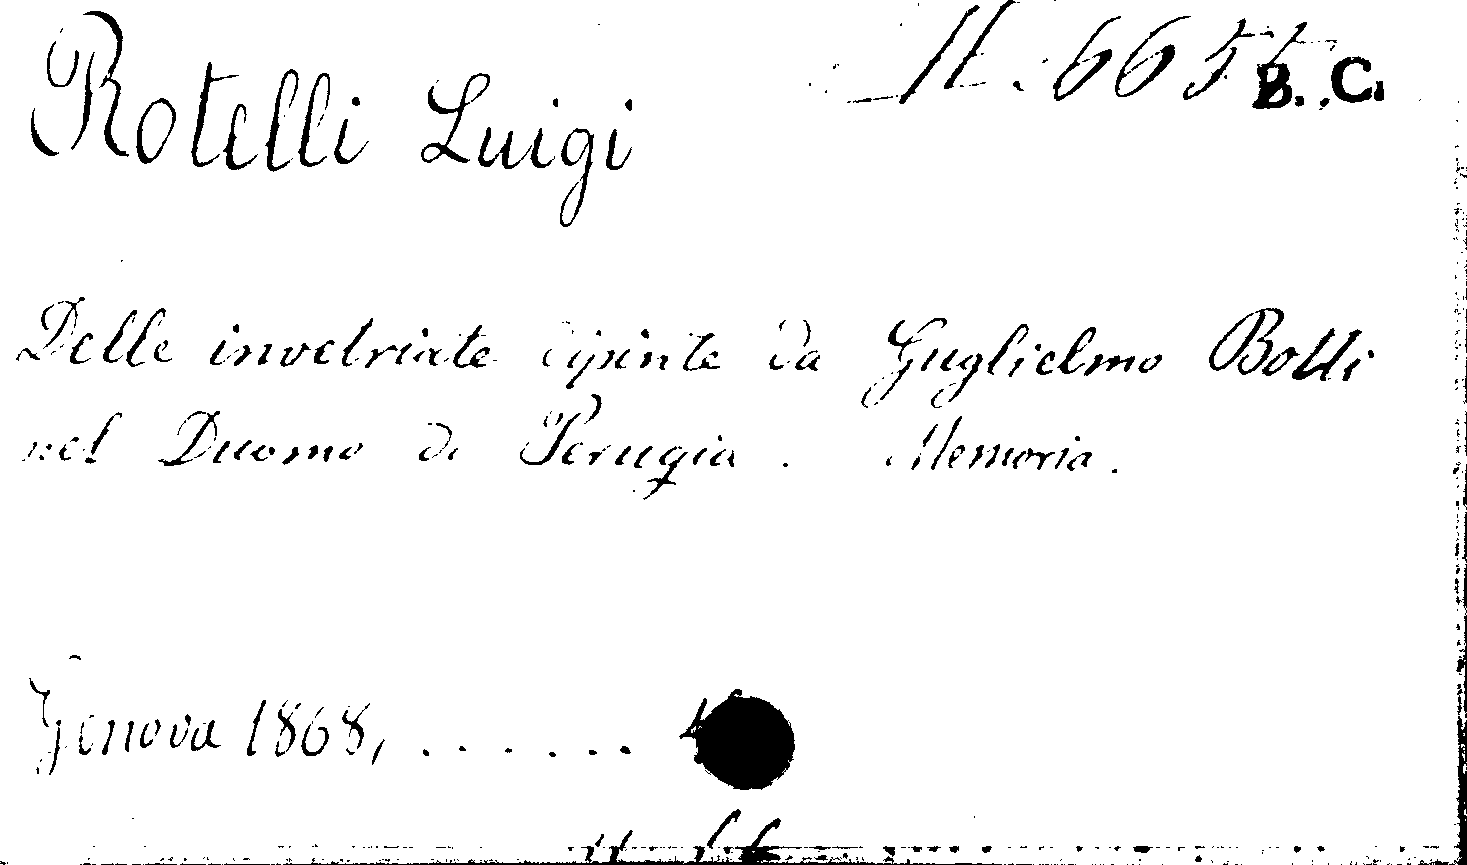 Rotelli Luigi
B. C.
Delle invetriate dipinte da Guglielmo Botti
nel Duomo di Perugia. Memoria.
Genova 1868, . . . . . .